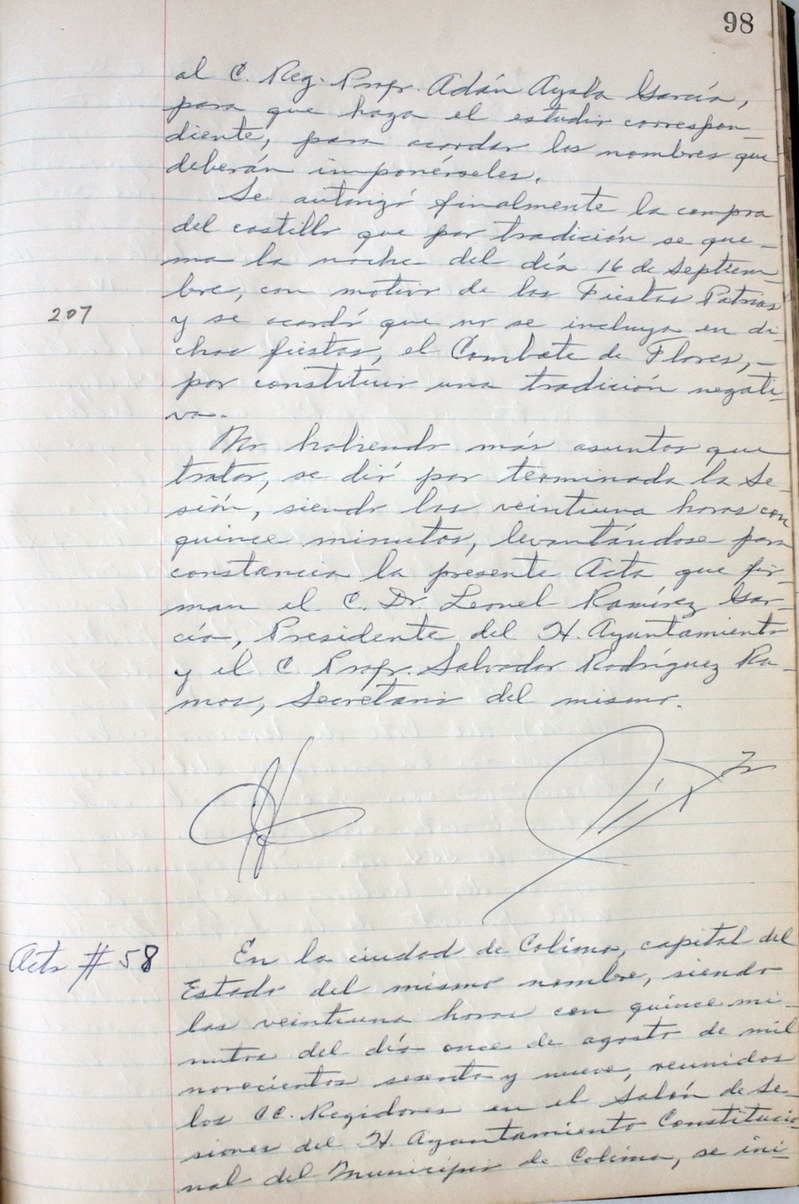 98
al C. Reg. Profr. Adán Ayala García,
para que haga el estudio correspon-
diente, para acordar los nombres que
deberán imponérseles.
Se autorizó finalmente la compra
del castillo que por tradición se que-
ma la noche del día 16 de Septiem-
bre, con motivo de las Fiestas Patrias
207
y se acordó que no se incluya en di-
chas fiestas, el Combate de Flores,-
por constituir una tradición negati-
va.-
No habiendo más asuntos que
tratar, se dió por terminada la Se-
sión, siendo las veintiuna horas con
quince minutos, levantándose para
constancia la presente Acta que fir-
man el C. Dr. Leonel Ramírez Gar-
cía, Presidente del H. Ayuntamiento
y el C. Profr. Salvador Rodríguez Ra-
mos, Secretario del mismo.
Acta # 58
En la ciudad de Colima, capital del
Estado del mismo nombre, siendo
las veintiuna horas con quince mi-
nutos del día once de agosto de mil
novecientos sesenta y nueve, reunidos
los CC. Regidores en el Salón de Se-
siones del H. Ayuntamiento Constitucio-
nal del Municipio de Colima, se ini-